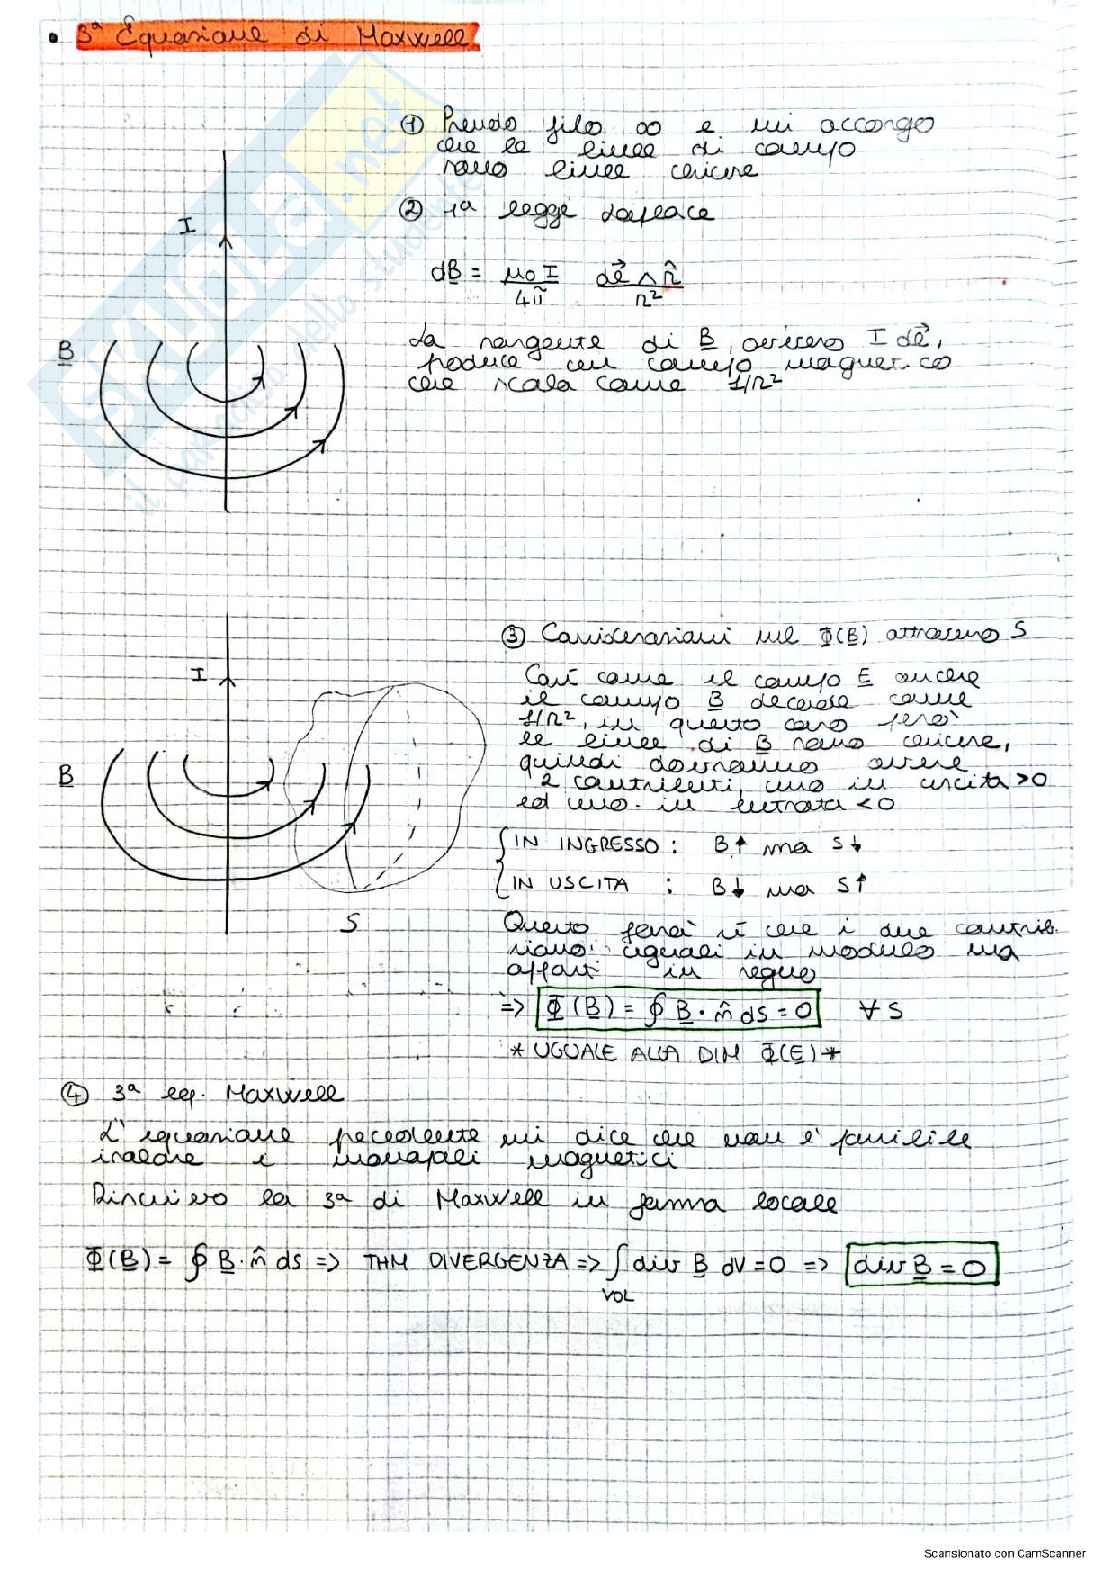 • 3ª Equazione di Maxwell
① Prendo filo ∞ e mi accorgo
che le linee di campo
sono linee chiuse
② 1ª legge Laplace
I
dB = μ0 I / 4π dl ∧ r̂ / r²
B
La sorgente di B, ovvero I dl,
produce un campo magnetico
che scala come 1/r²
③ Considerazioni sul Φ(B) attraverso S
I
Così come il campo E anche
il campo B decade come
1/r², in questo caso però
le linee di B sono chiuse,
B
quindi dovranno avere
2 contributi, uno in uscita >0
ed uno in entrata <0
{ IN INGRESSO : B↑ ma S↓
{ IN USCITA : B↓ ma S↑
S
Questo farà sì che i due contrib.
siano uguali in modulo ma
opposti in segno
=> Φ(B) = ∮ B · n̂ dS = 0 ∀ S
* UGUALE ALLA DIM Φ(E) *
④ 3ª eq. Maxwell
L'equazione precedente mi dice che non è possibile
isolare i monopoli magnetici
Riscrivo la 3ª di Maxwell in forma locale
Φ(B) = ∮ B · n̂ dS => THM DIVERGENZA => ∫ div B dV = 0 => div B = 0
VOL
SKUOLA.net
Scansionato con CamScanner